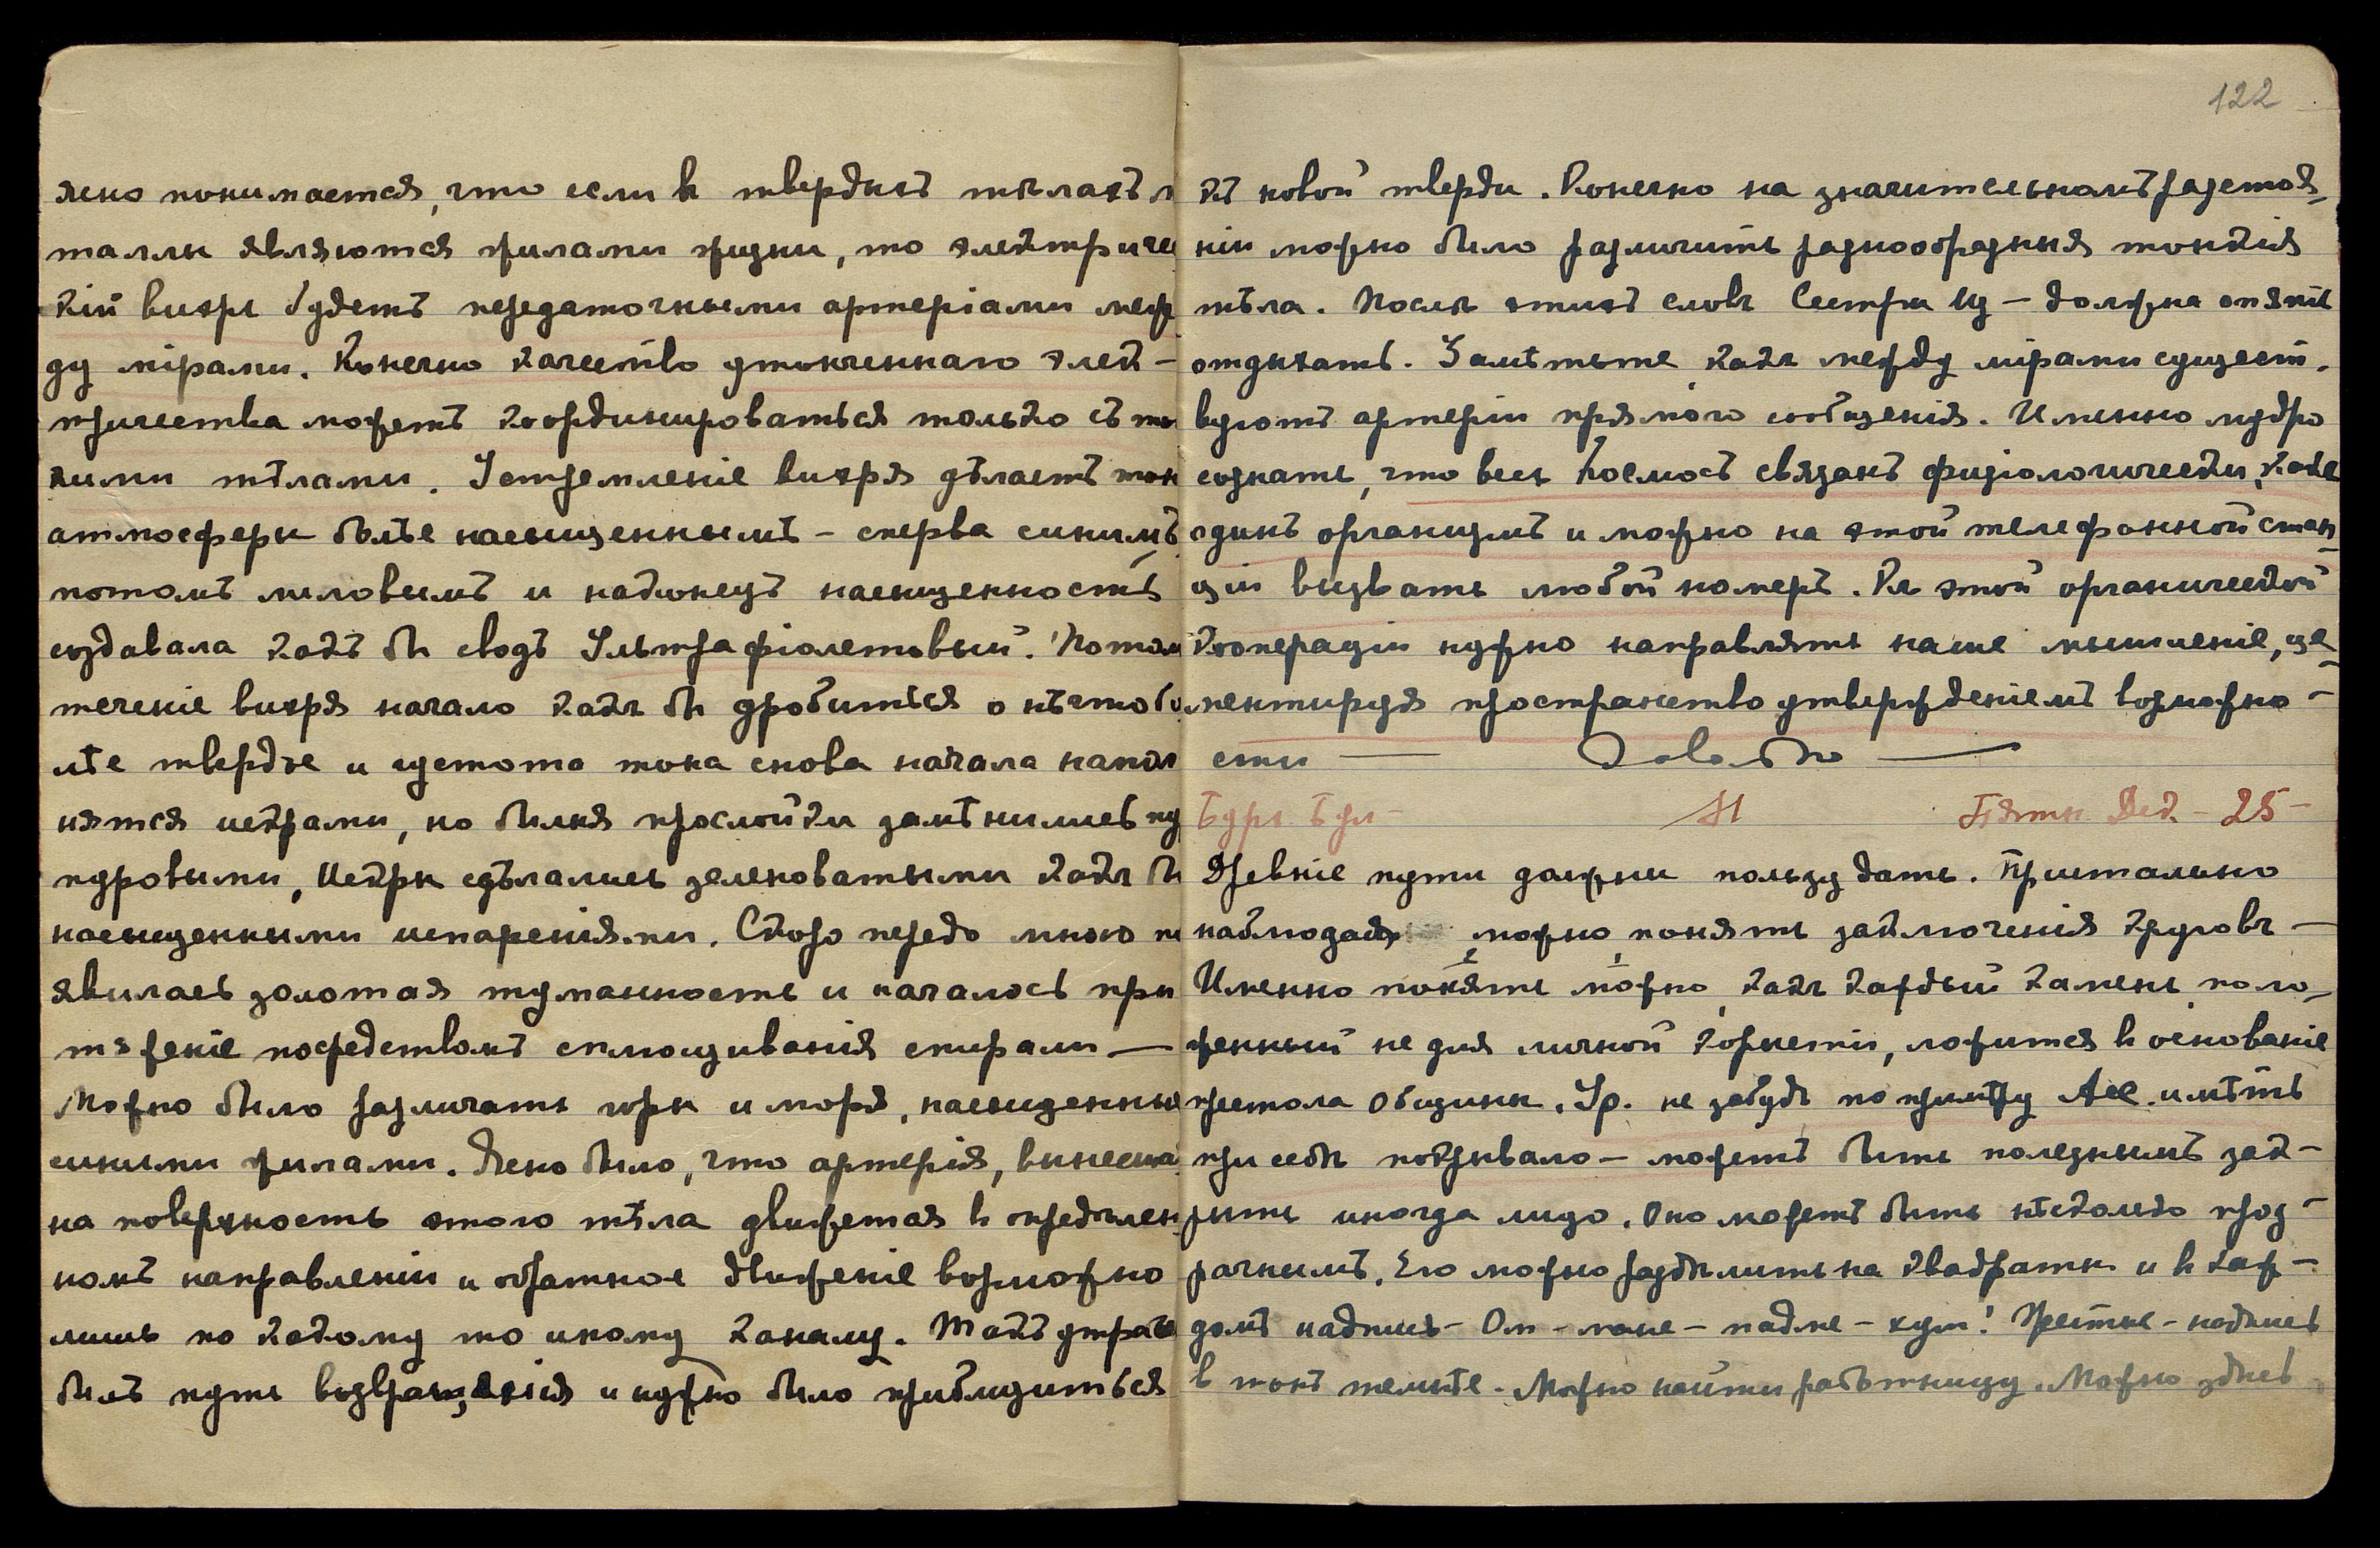 ясно понимается, что если в твердыхъ тѣлахъ м
таллы являются жилами жизни, то электриче
кій вихрь будетъ передаточными артеріами меж
ду мірами. Конечно качество утонченнаго элек-
тричества можетъ координироваться только съ тон
кими тѣлами. Устремленіе вихря дѣлаетъ тон
атмосферы болѣе насыщеннымъ - сперва синимъ
потомъ лиловымъ и наконецъ насыщенность
создавала какъ бы сводъ Ультрафіолетовый. Потом
теченіе вихря начало какъ бы дробиться о нѣчто бо
лѣе твердое и густота тона снова начала напол
няться искрами, но былыя прослойки замѣнились пу
пуровыми, Искры сдѣлались зеленоватыми какъ бы
насыщенными испареніями. Скоро передо мною по
явилась золотая туманность и началось при
тяженіе посредствомъ сплющиванія спирали —
Можно было различать горы и моря, насыщенныя
синими жилами. Ясно было, что артерія, вынесша
на поверхность этого тѣла движется в опредѣлен
номъ направленіи и обратное движеніе возможно
лишь по какому то иному каналу. Такъ утраче
былъ путь возвращенія и нужно было приблизиться
122
къ новой тверди. Конечно на значительномъ разстоя-
ніи можно было различить разнообразныя тонкія
тѣла. Послѣ этихъ словъ Сестра Из - должна опять
отдыхать. Замѣтьте, какъ между мірами сущест-
вуютъ артеріи прямого сообщенія. Именно мудро
сознать, что весь Космосъ связанъ физіологически, какъ
одинъ организмъ и можно на этой телефонной стан-
ціи вызвать любой номеръ. Къ этой органической
Кооперации нужно направлять наше мышленіе, це-
ментируя пространство утвержденіемъ возможно-
сти — Довольно —
Бурь Бул- М Пятн. Дек - 25 -
Древніе пути должны пользу дать. Пристально
наблюдая, можно понять заключенія круговъ —
Именно понять можно, какъ каждый камень, поло-
женный не для личной корысти, ложится в основаніе
престола Общины. Ур. не забудь по примѣру Асс. имѣть
при себѣ покрывало - можетъ быть полезнымъ зак-
рыть иногда лицо. Оно можетъ быть нѣсколько проз-
рачнымъ. Его можно раздѣлить на квадраты и в каж-
домъ надпись - Ом - мане - падме - хум! Простые - надпись
в тонъ темнѣе. Можно найти работницу. Можно здѣсь